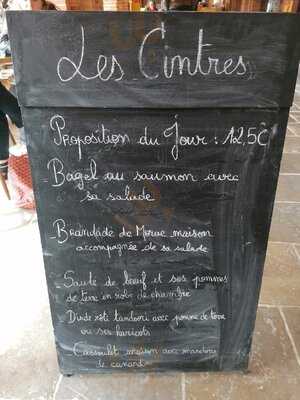 Les Cintres
Proposition du Jour : 12,5€
- Bagel au saumon avec
sa salade
- Brandade de Morue maison
accompagnée de sa salade
- Sauté de boeuf et ses pommes
de terre en robe de chambre
- Dinde rôti tandoori avec pomme de terre
ou ses haricots
- Cassoulet maison aux manchons
de canard